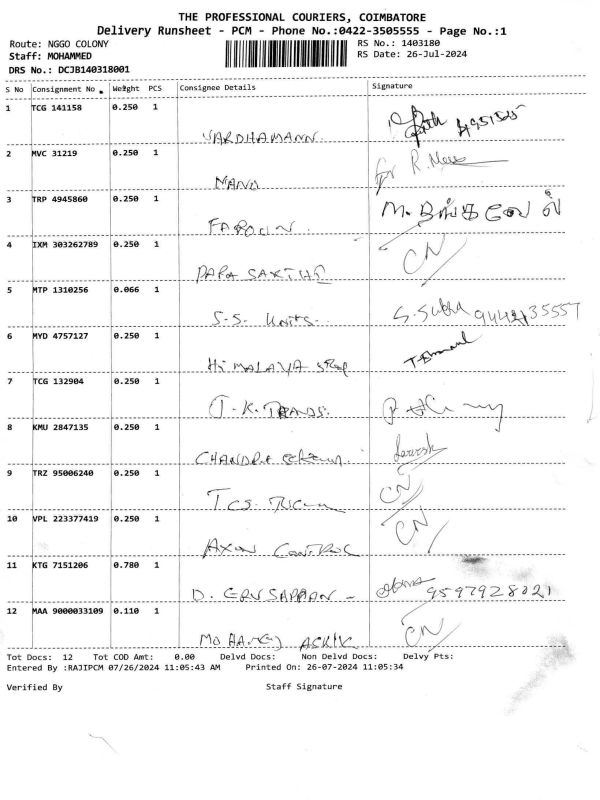 THE PROFESSIONAL COURIERS, COIMBATORE
Delivery Runsheet - PCM - Phone No.:0422-3505555 - Page No.:1
Route: NGGO COLONY RS No.: 1403180
Staff: MOHAMMED RS Date: 26-Jul-2024
DRS No.: DCJB140318001
S No Consignment No Weight PCS Consignee Details Signature
1 TCG 141158 0.250 1
VARDHAMANN.
2 MVC 31219 0.250 1 for R.
NANU
3 TRP 4945860 0.250 1
FAROOIN.
4 IXM 303262789 0.250 1 CN
PAPA SAKTHI
5 MTP 1310256 0.066 1 S. Subha
S.S. Units.
6 MYD 4757127 0.250 1
HIMALAYA
7 TCG 132904 0.250 1
J.K. TRANDS.
8 KMU 2847135 0.250 1
CHANDRA
9 TRZ 95006240 0.250 1 CN
TCS.
10 VPL 223377419 0.250 1 CN
AXON CONTROL
11 KTG 7151206 0.780 1 9597928021
D.
12 MAA 9000033109 0.110 1 CN
Tot Docs: 12 Tot COD Amt: 0.00 Delvd Docs: Non Delvd Docs: Delvy Pts:
Entered By :RAJIPCM 07/26/2024 11:05:43 AM Printed On: 26-07-2024 11:05:34
Verified By Staff Signature